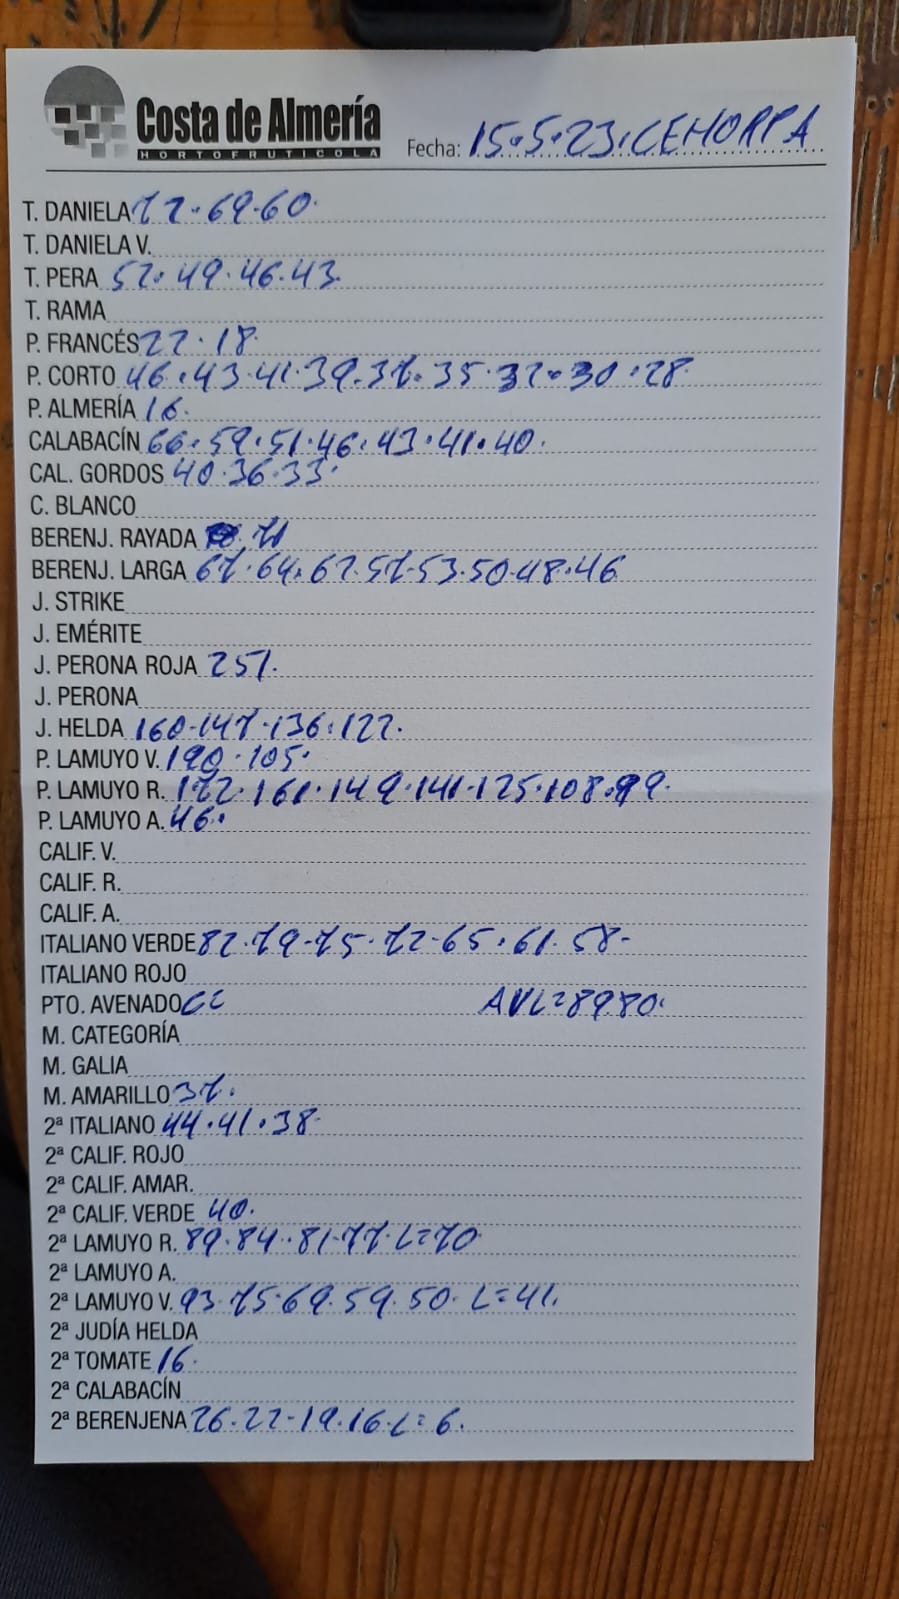 Costa de Almería
HORTOFRUTICOLA
Fecha: 15.5.23. CEHORPA
T. DANIELA 72.69.60.
T. DANIELA V.
T. PERA 52.49.46.43.
T. RAMA
P. FRANCÉS 22.18.
P. CORTO 46.43.41.39.37.35.32.30.28.
P. ALMERÍA 16.
CALABACÍN 66.59.51.46.43.41.40.
CAL. GORDOS 40.36.33.
C. BLANCO
BERENJ. RAYADA 71
BERENJ. LARGA 67.64.62.57.53.50.48.46
J. STRIKE
J. EMÉRITE
J. PERONA ROJA 257.
J. PERONA
J. HELDA 160.147.136.122.
P. LAMUYO V. 190.105.
P. LAMUYO R. 172.161.149.141.125.108.99.
P. LAMUYO A. 46.
CALIF. V.
CALIF. R.
CALIF. A.
ITALIANO VERDE 82.79-75.72-65.61.58-
ITALIANO ROJO
PTO. AVENADO AVL=8980.
M. CATEGORÍA
M. GALIA
M. AMARILLO 37.
2ª ITALIANO 44.41.38
2ª CALIF. ROJO
2ª CALIF. AMAR.
2ª CALIF. VERDE 40.
2ª LAMUYO R. 89.84.81.77.L=70
2ª LAMUYO A.
2ª LAMUYO V. 93.75.69.59.50.L=41.
2ª JUDÍA HELDA
2ª TOMATE 16.
2ª CALABACÍN
2ª BERENJENA 26.22-19.16.L=6.